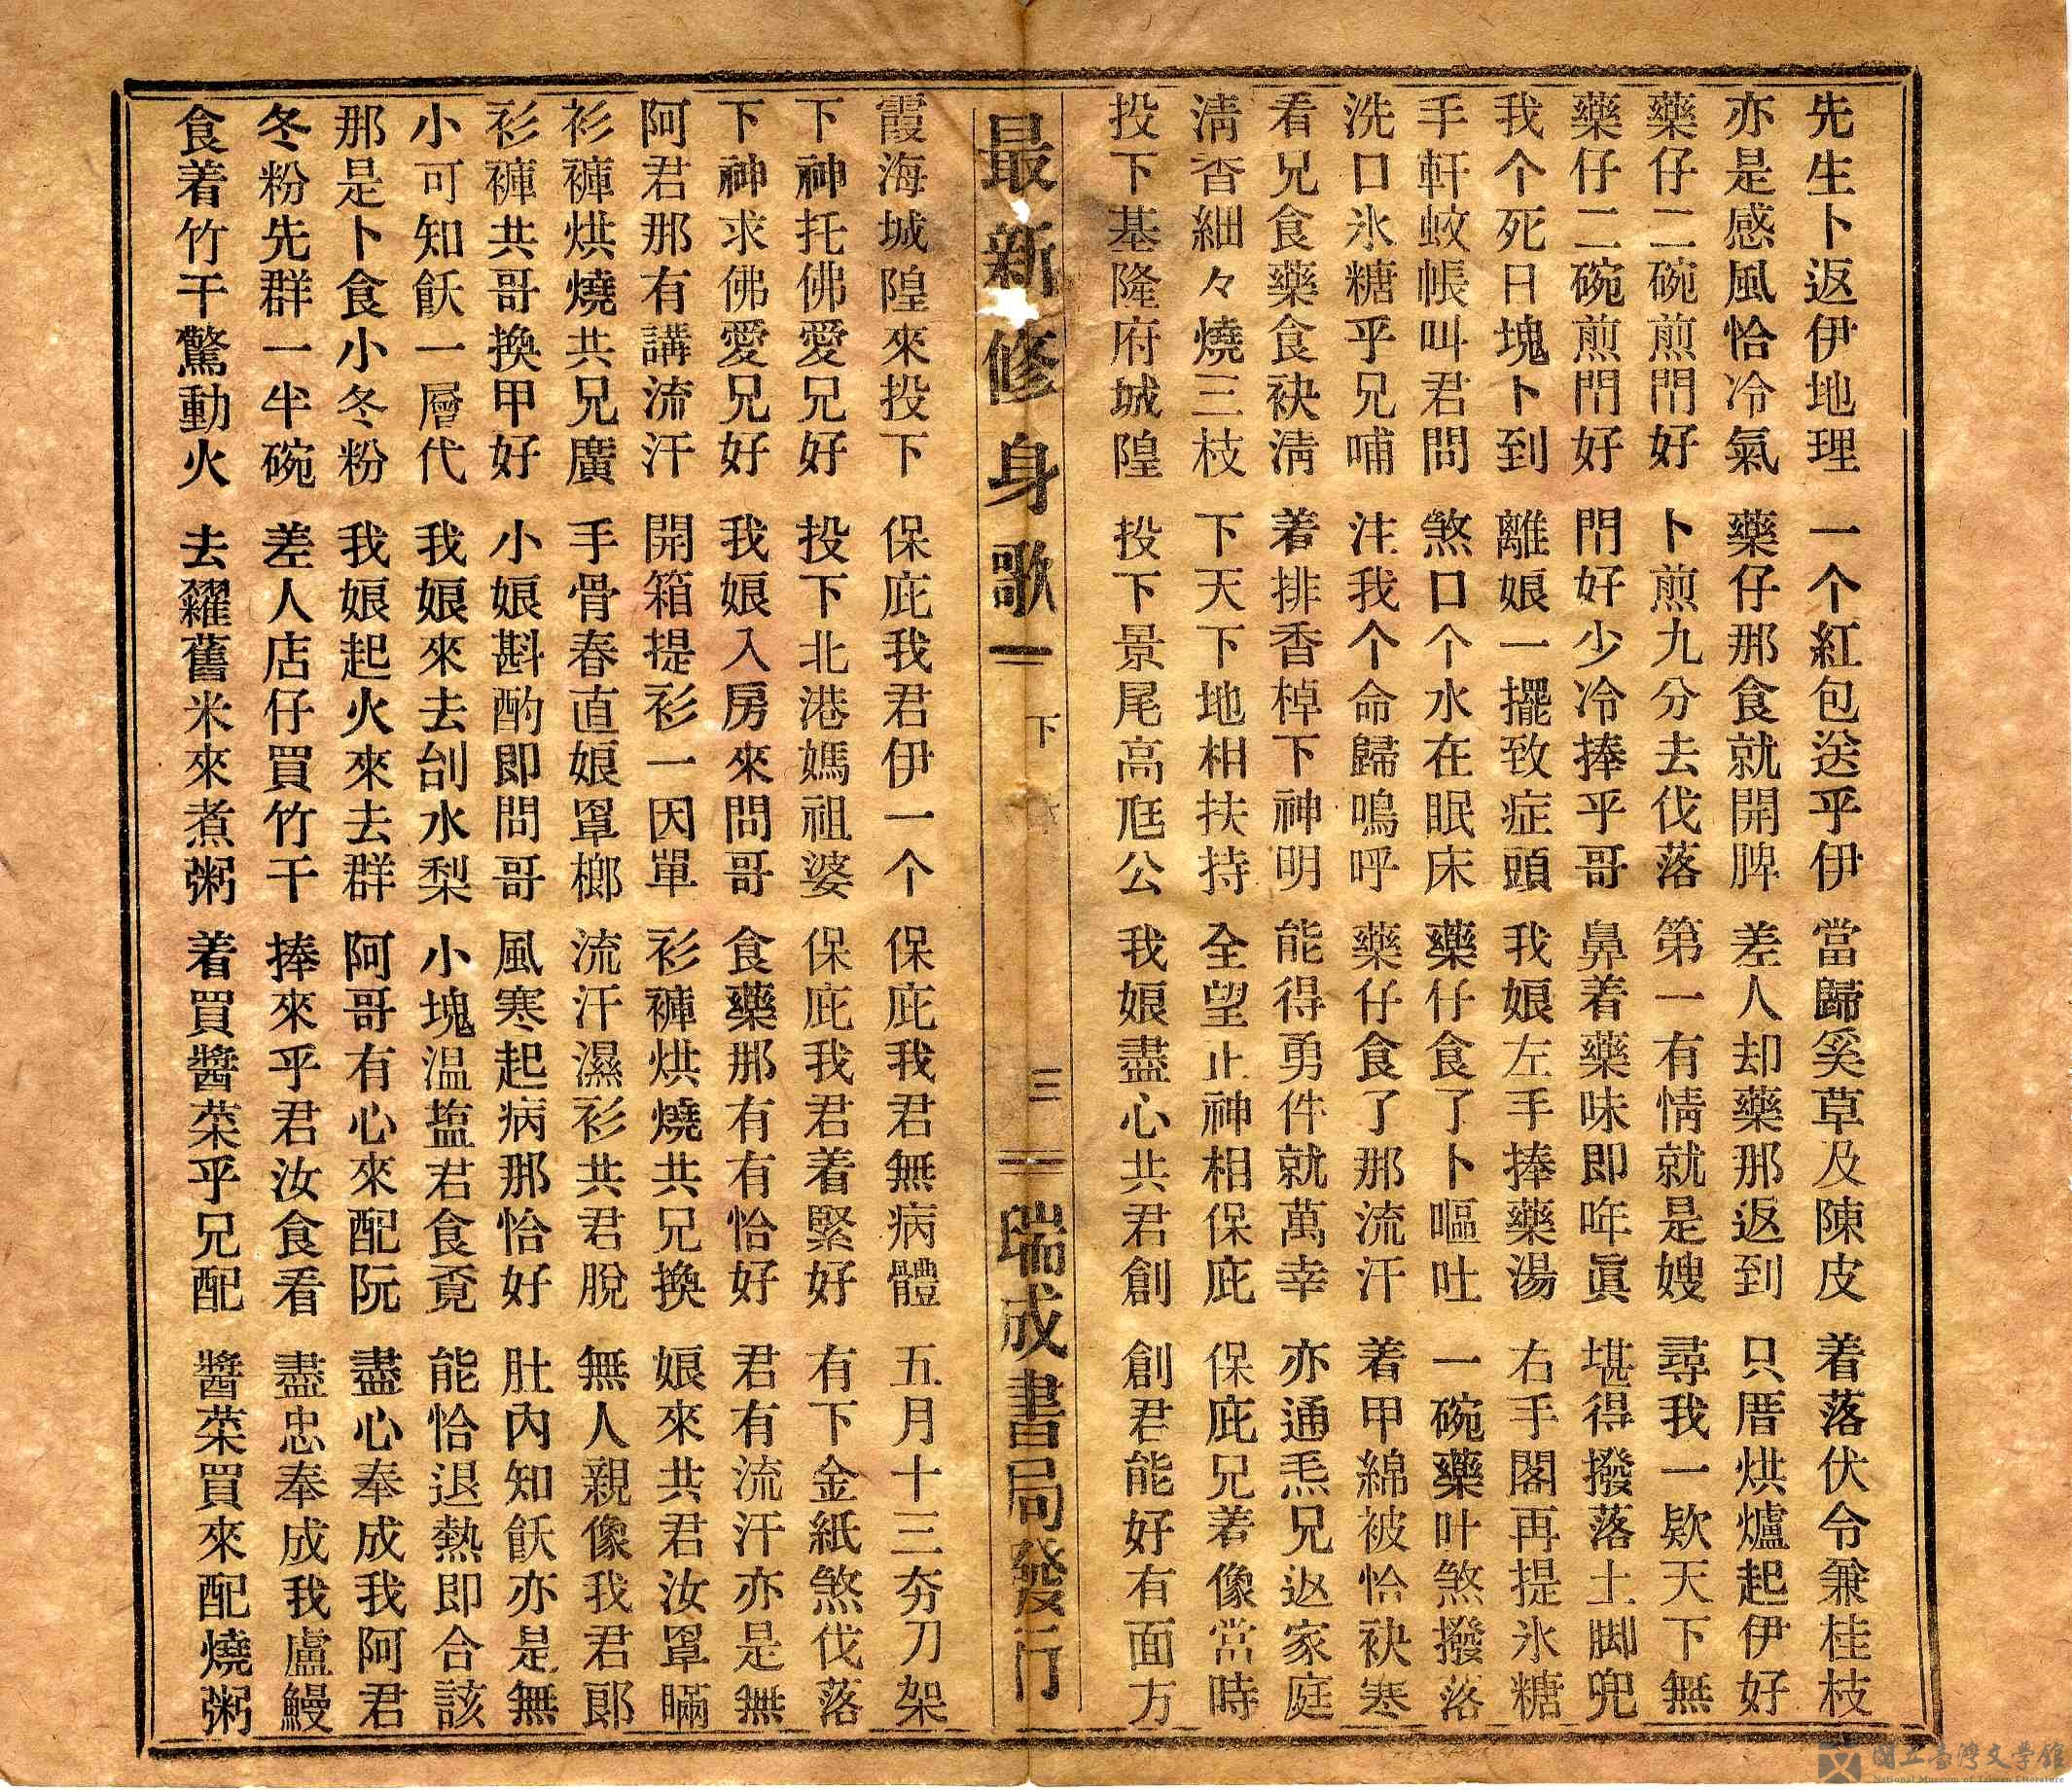 先生卜返伊地理　一个紅包送乎伊　當歸奚草及陳皮　着落伏令兼桂枝
亦是感風恰冷氣　藥仔那食就開脾　差人却藥那返到　只厝烘爐起伊好
藥仔二碗煎門好　卜煎九分去伐落　第一有情就是嫂　尋我一欵天下無
藥仔二碗煎門好　門好少冷捧乎哥　鼻着藥味即年眞　堪得撥落土脚兜
我个死日塊卜到　離娘一擺致症頭　我娘左手捧藥湯　右手閣再提氷糖
手軒蚊帳叫君問　煞口个水在眠床　藥仔食了卜嘔吐　一碗藥叶煞撥落
洗口氷糖乎兄哺　注我个命歸鳴呼　藥仔食了那流汗　着甲綿被恰袂寒
看兄食藥食袂淸　着排香棹下神明　能得勇件就萬幸　亦通炁兄返家庭
淸香細々燒三枝　下天下地相扶持　全望止神相保庇　保庇兄著像當時
投下基隆府城隍　投下景尾高尪公　我娘盡心共君創　創君能好有面方
最新修身歌　下　三　瑞成書局發行
霞海城隍來投下　保庇我君伊一个　保庇我君無病體　五月十三夯刀架
下神托佛愛兄好　投下北港媽祖婆　保庇我君着緊好　有下金紙煞伐落
下神求佛愛兄好　我娘入房來問哥　食藥那有有恰好　君有流汗亦是無
阿君那有講流汗　開箱提衫一因單　衫褲烘燒共兄換　娘來共君汝罩瞞
衫褲烘燒共兄廣　手骨春直娘罩榔　流汗濕衫共君脫　無人親像我君郎
衫褲共哥換甲好　小娘斟酌即問哥　風寒起病那恰好　肚內知飫亦是無
小可知飫一層代　我娘來去刣水梨　小塊温塩君食覔　能恰退熱即合該
那是卜食小冬粉　我娘起火來去群　阿哥有心來配阮　盡心奉成我阿君
冬粉先群一半碗　差人店仔買竹干　捧來乎君汝食看　盡忠奉成我盧鰻
食着竹干驚動火　去糴舊米來煮粥　着買醬菜乎兄配　醬菜買來配燒粥
國立臺灣文學館
National Museum of Taiwan Literature